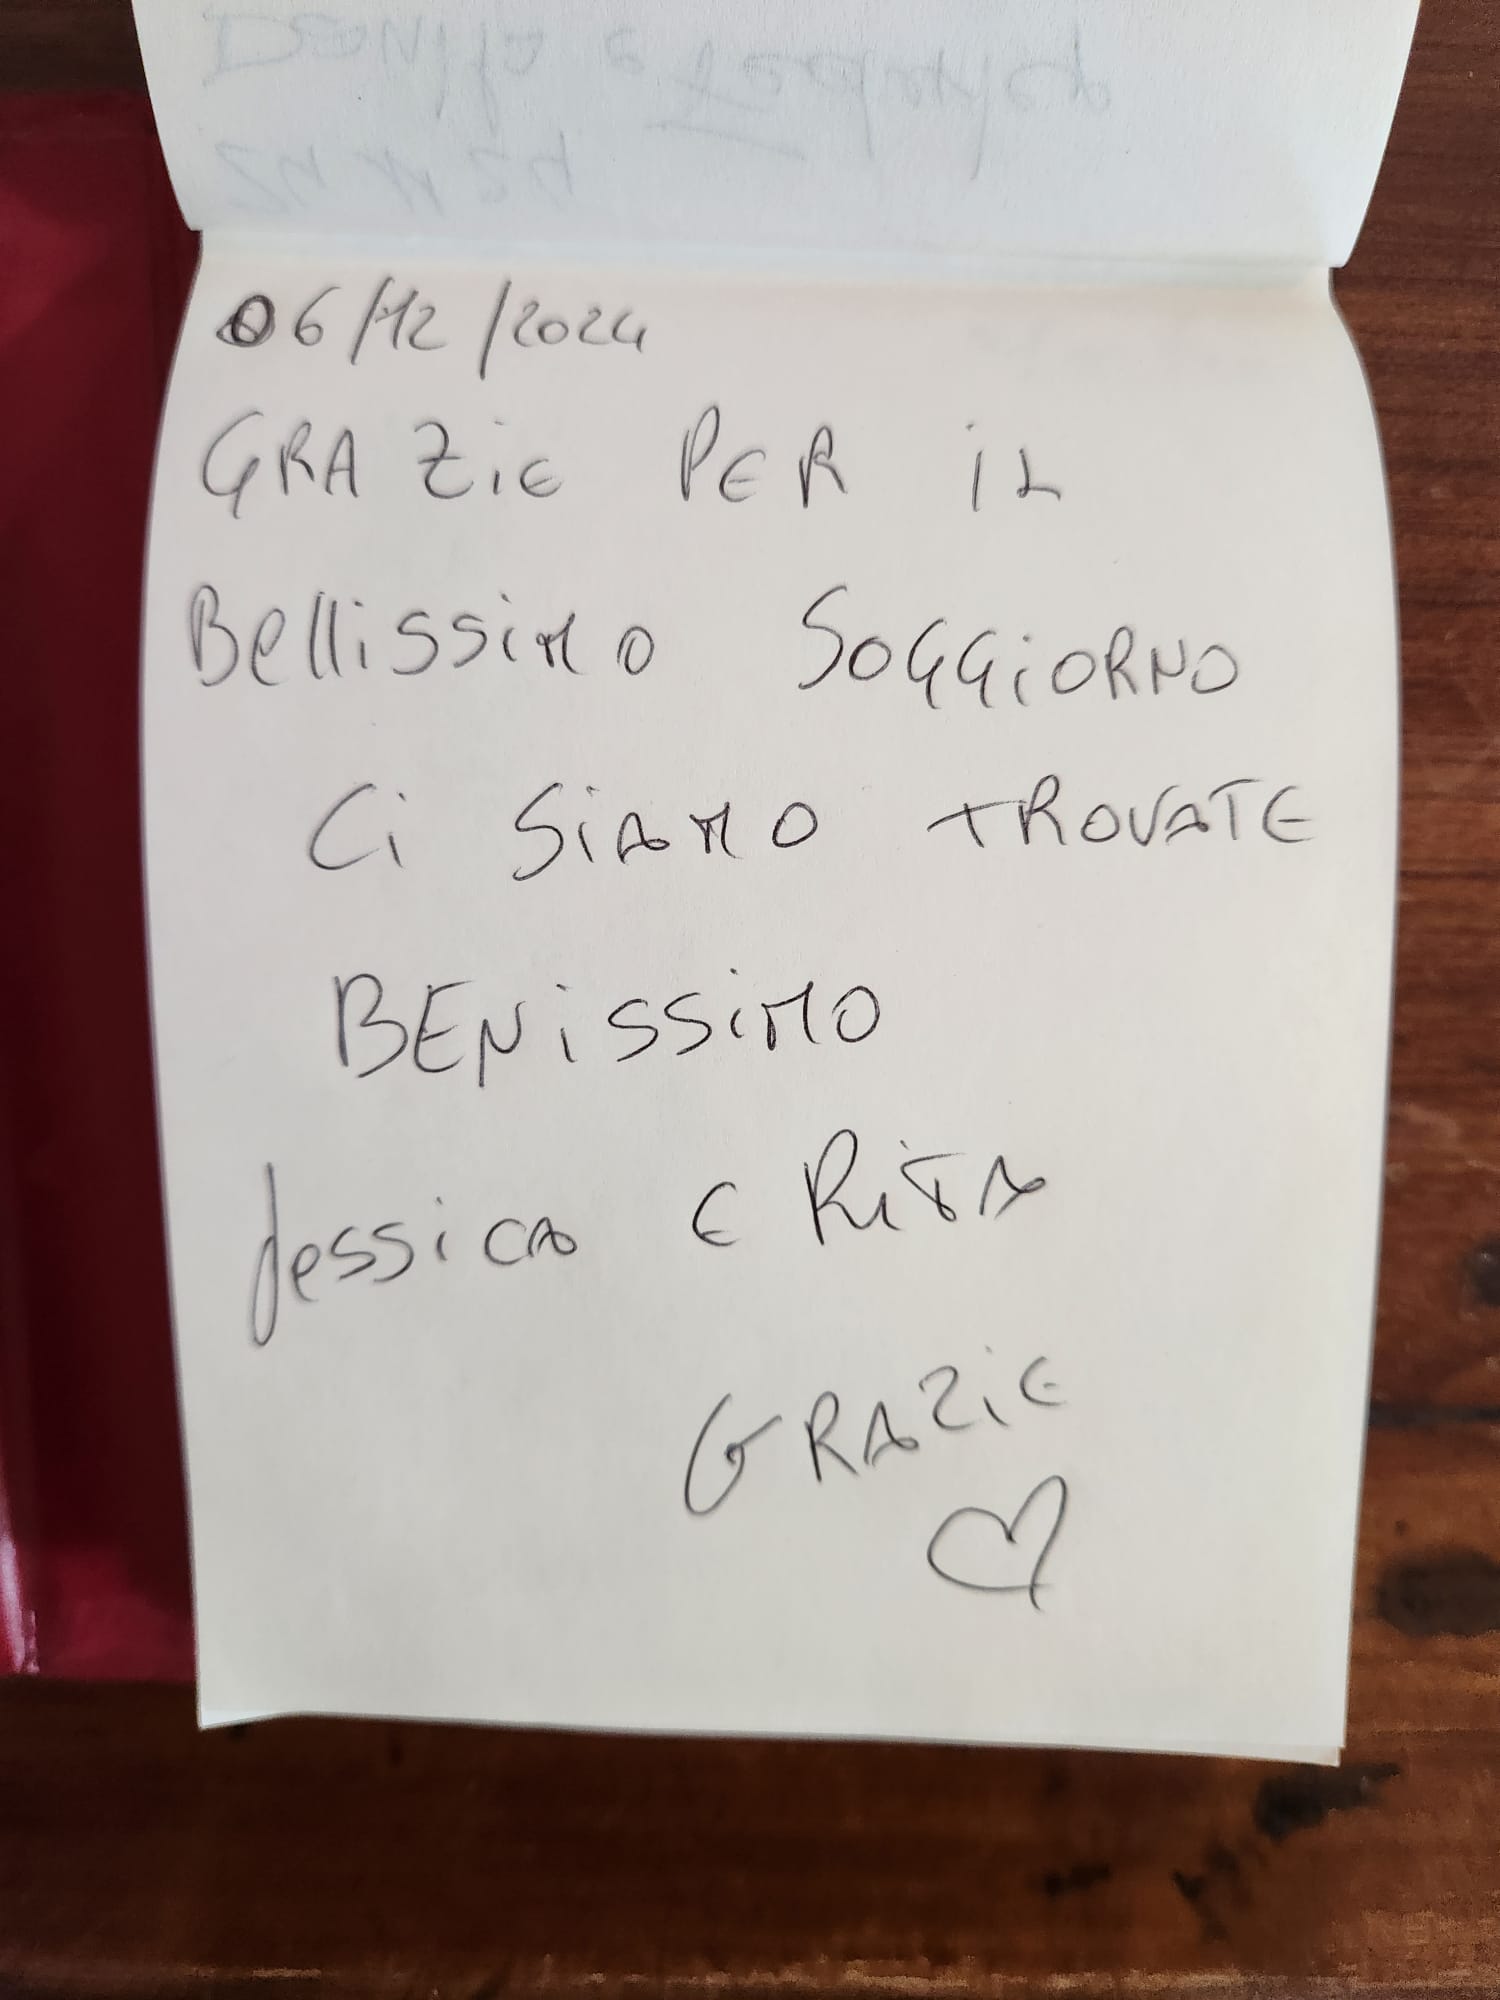 06/12/2024
GRAZIE PER IL
BELLISSIMO SOGGIORNO
CI SIAMO TROVATE
BENISSIMO
Jessica E RITA
GRAZIE